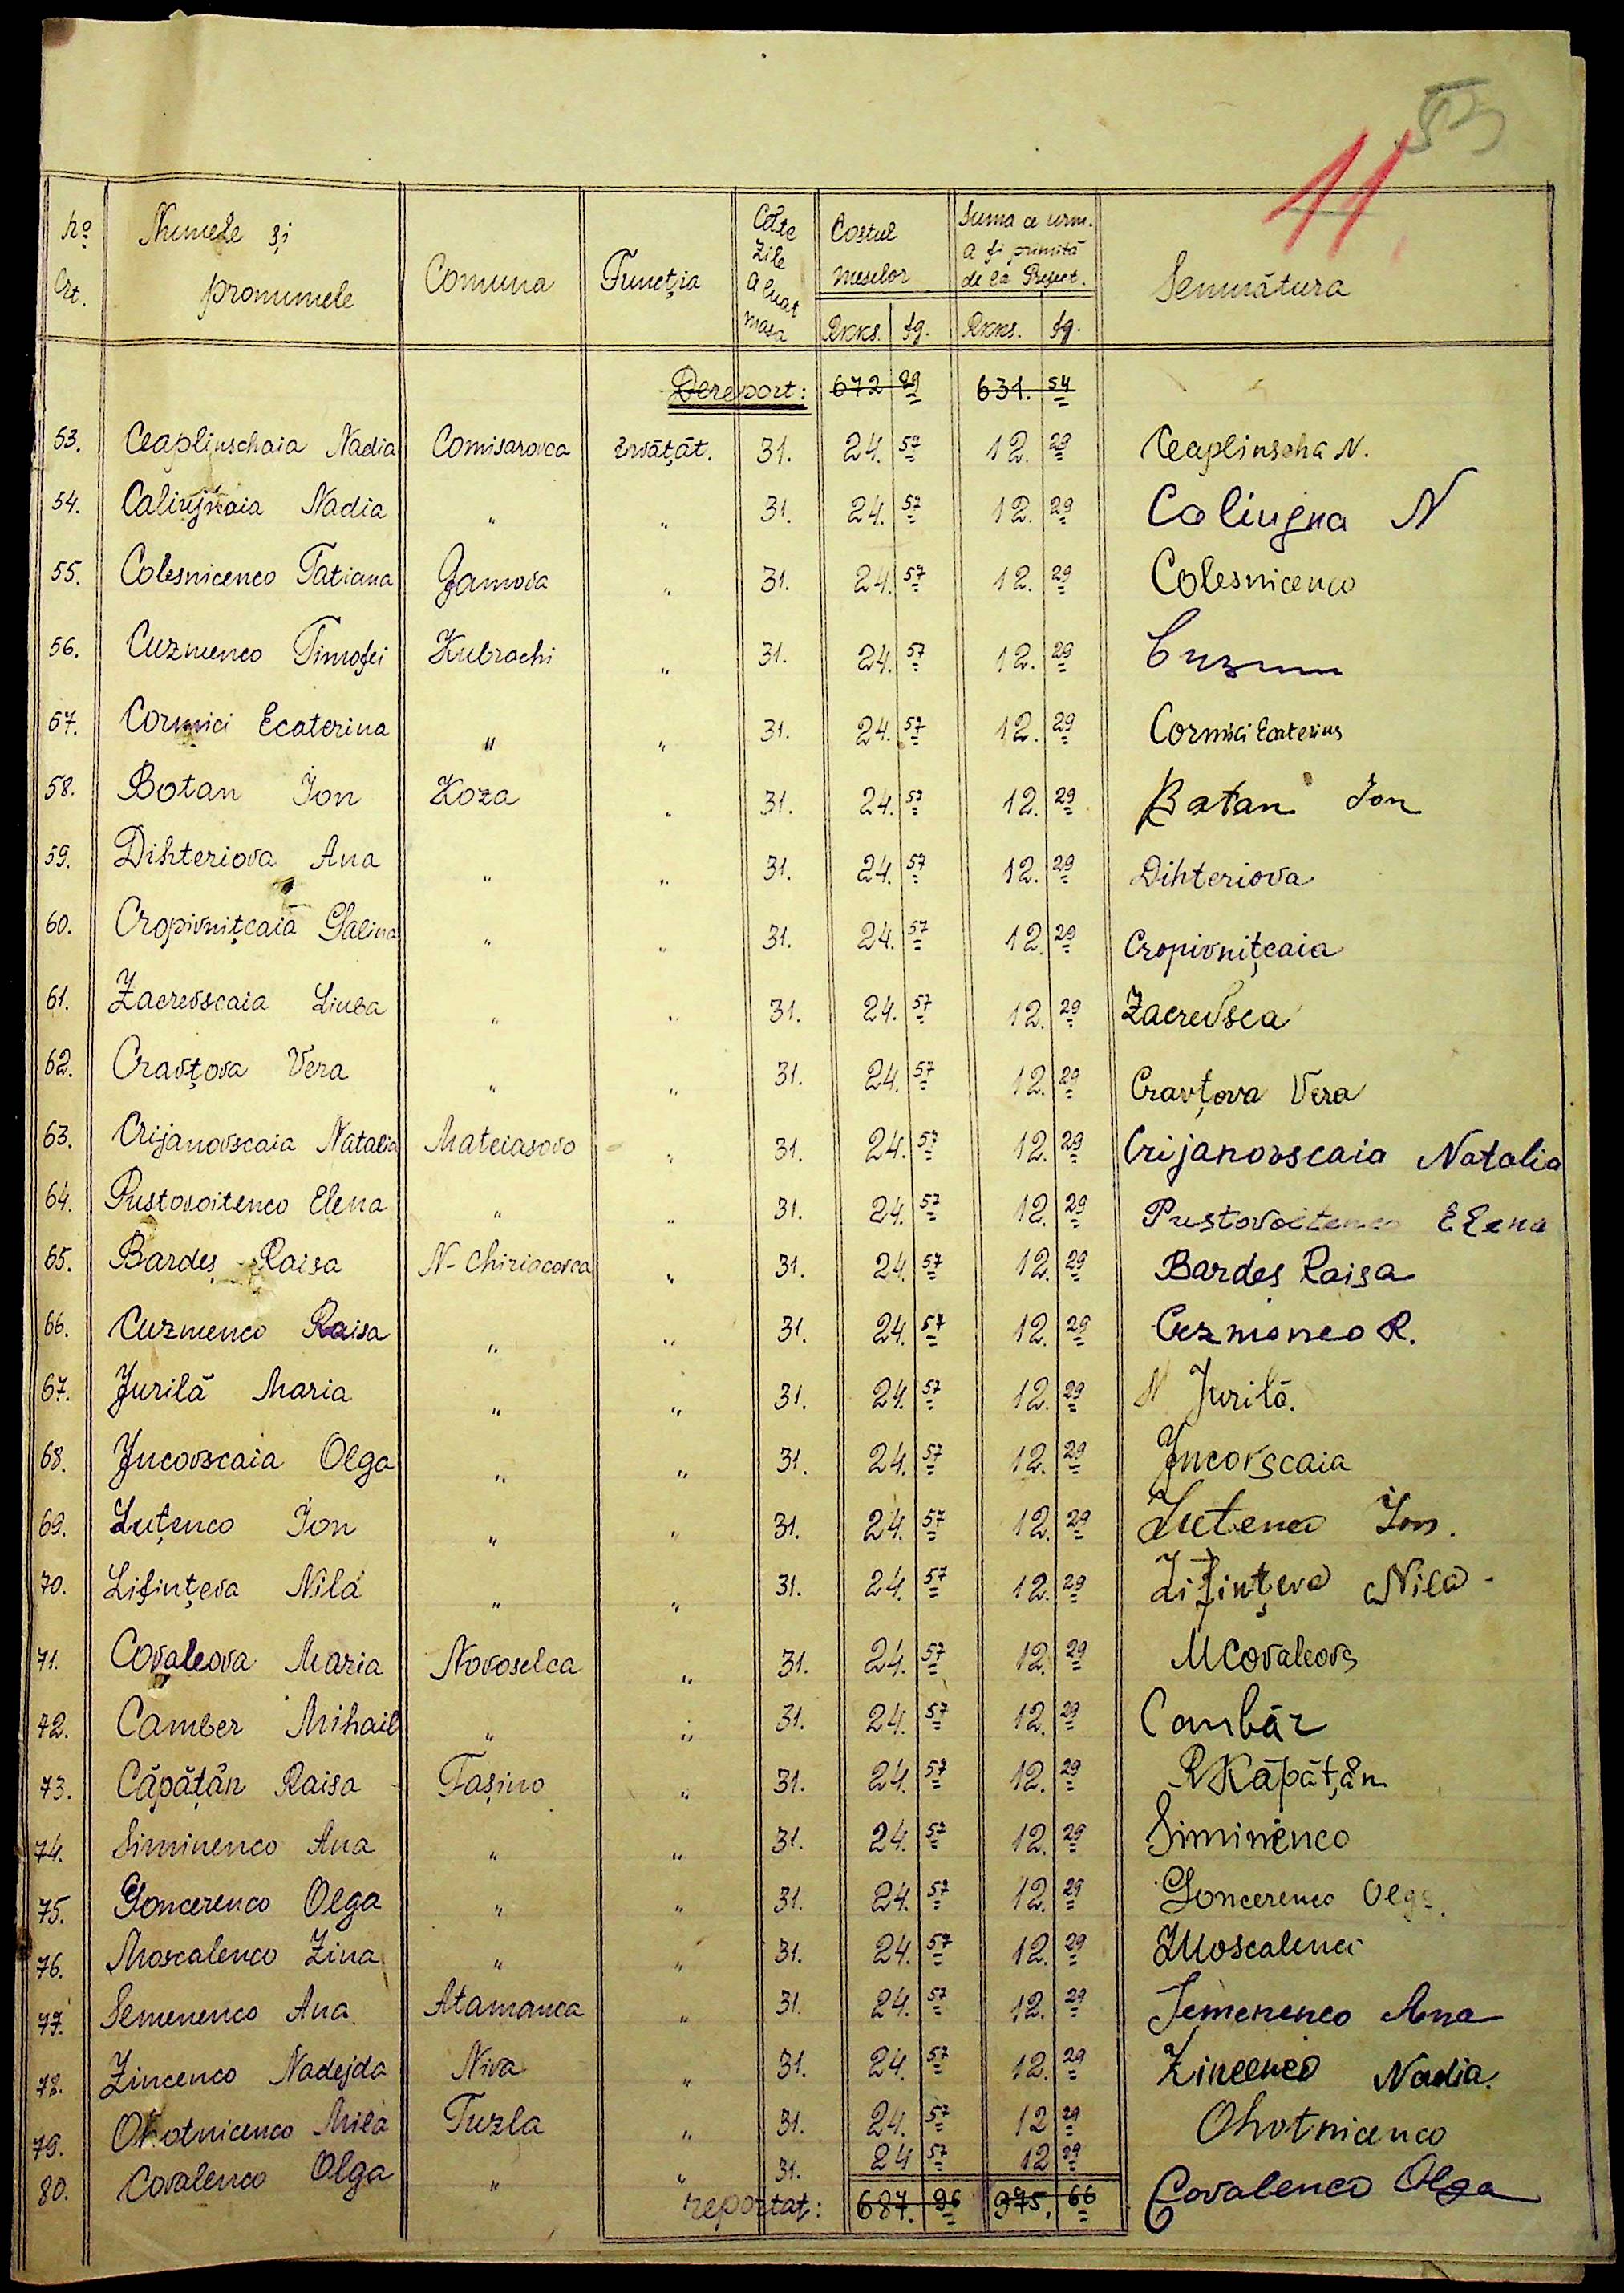 53
11.
No Crt. Numele și pronumele Comuna Funcția Câte zile a luat masa Costul meselor Suma ce urm. a fi primită de la Prefect. Semnătura
Rkks. fg. Rkks. fg.
Dereport: 672 89 631. 54
53. Ceaplinschaia Nadia Comisarovca învățăt. 31. 24. 57 12. 29 Ceaplinscha N.
54. Caliujnaia Nadia " " 31. 24. 57 12. 29 Caliugna N
55. Colesnicenco Tatiana Gamova " 31. 24. 57 12. 29 Colesnicenco
56. Cuzmenco Timofei Kubrachi " 31. 24. 57 12. 29
57. Cormici Ecaterina " " 31. 24. 57 12. 29 Cormici Ecaterina
58. Botan Ion Koza " 31. 24. 57 12. 29 Batan Ion
59. Dihteriova Ana " " 31. 24. 57 12. 29 Dihteriova
60. Cropivnițcaia Galina " " 31. 24. 57 12. 29 Cropivnițcaia
61. Zacrevscaia Liuba " " 31. 24. 57 12. 29 Zacrevsca
62. Cravțova Vera " " 31. 24. 57 12. 29 Cravțova Vera
63. Crijanovscaia Natalia Mateiasovo " 31. 24. 57 12. 29 Crijanovscaia Natalia
64. Pustovoitenco Elena " " 31. 24. 57 12. 29 Pustovoitenco Elena
65. Bardeș Raisa N-Chiriacovca " 31. 24. 57 12. 29 Bardeș Raisa
66. Cuzmenco Raisa " " 31. 24. 57 12. 29 Cuzmenco R.
67. Jurilă Maria " " 31. 24. 57 12. 29 Jurilă.
68. Jucovscaia Olga " " 31. 24. 57 12. 29 Jucovscaia
69. Luțenco Ion " " 31. 24. 57 12. 29 Lutenco Ion.
70. Lifințeva Nila " " 31. 24. 57 12. 29 Lifințeva Nila
71. Covaleova Maria Novoselca " 31. 24. 57 12. 29 M Covaleova
72. Camber Mihail " " 31. 24. 57 12. 29 Cambăr
73. Căpățân Raisa Tașino " 31. 24. 57 12. 29 R Kăpățân
74. Siminenco Ana " " 31. 24. 57 12. 29 Siminenco
75. Goncerenco Olga " " 31. 24. 57 12. 29 Goncerenco Olga.
76. Moscalenco Zina " " 31. 24. 57 12. 29 ZMoscalenco
77. Semenenco Ana Atamanca " 31. 24. 57 12. 29 Semenenco Ana
78. Zincenco Nadejda Niva " 31. 24. 57 12. 29 Zincenco Nadia.
79. Ohotnicenco Mila Tuzla " 31. 24. 57 12 29 Ohotnicenco
80. Covalenco Olga " " 31. 24 57 12 29 Covalenco Olga
reportat: 687. 96 975. 66